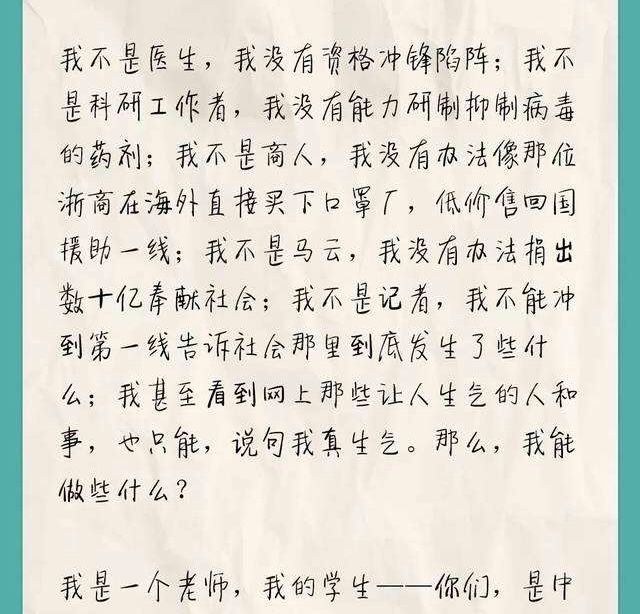 我不是医生，我没有资格冲锋陷阵；我不
是科研工作者，我没有能力研制抑制病毒
的药剂；我不是商人，我没有办法像那位
浙商在海外直接买下口罩厂，低价售回国
援助一线；我不是马云，我没有办法捐出
数十亿奉献社会；我不是记者，我不能冲
到第一线告诉社会那里到底发生了些什
么；我甚至看到网上那些让人生气的人和
事，也只能，说句我真生气。那么，我能
做些什么？
我是一个老师，我的学生——你们，是中